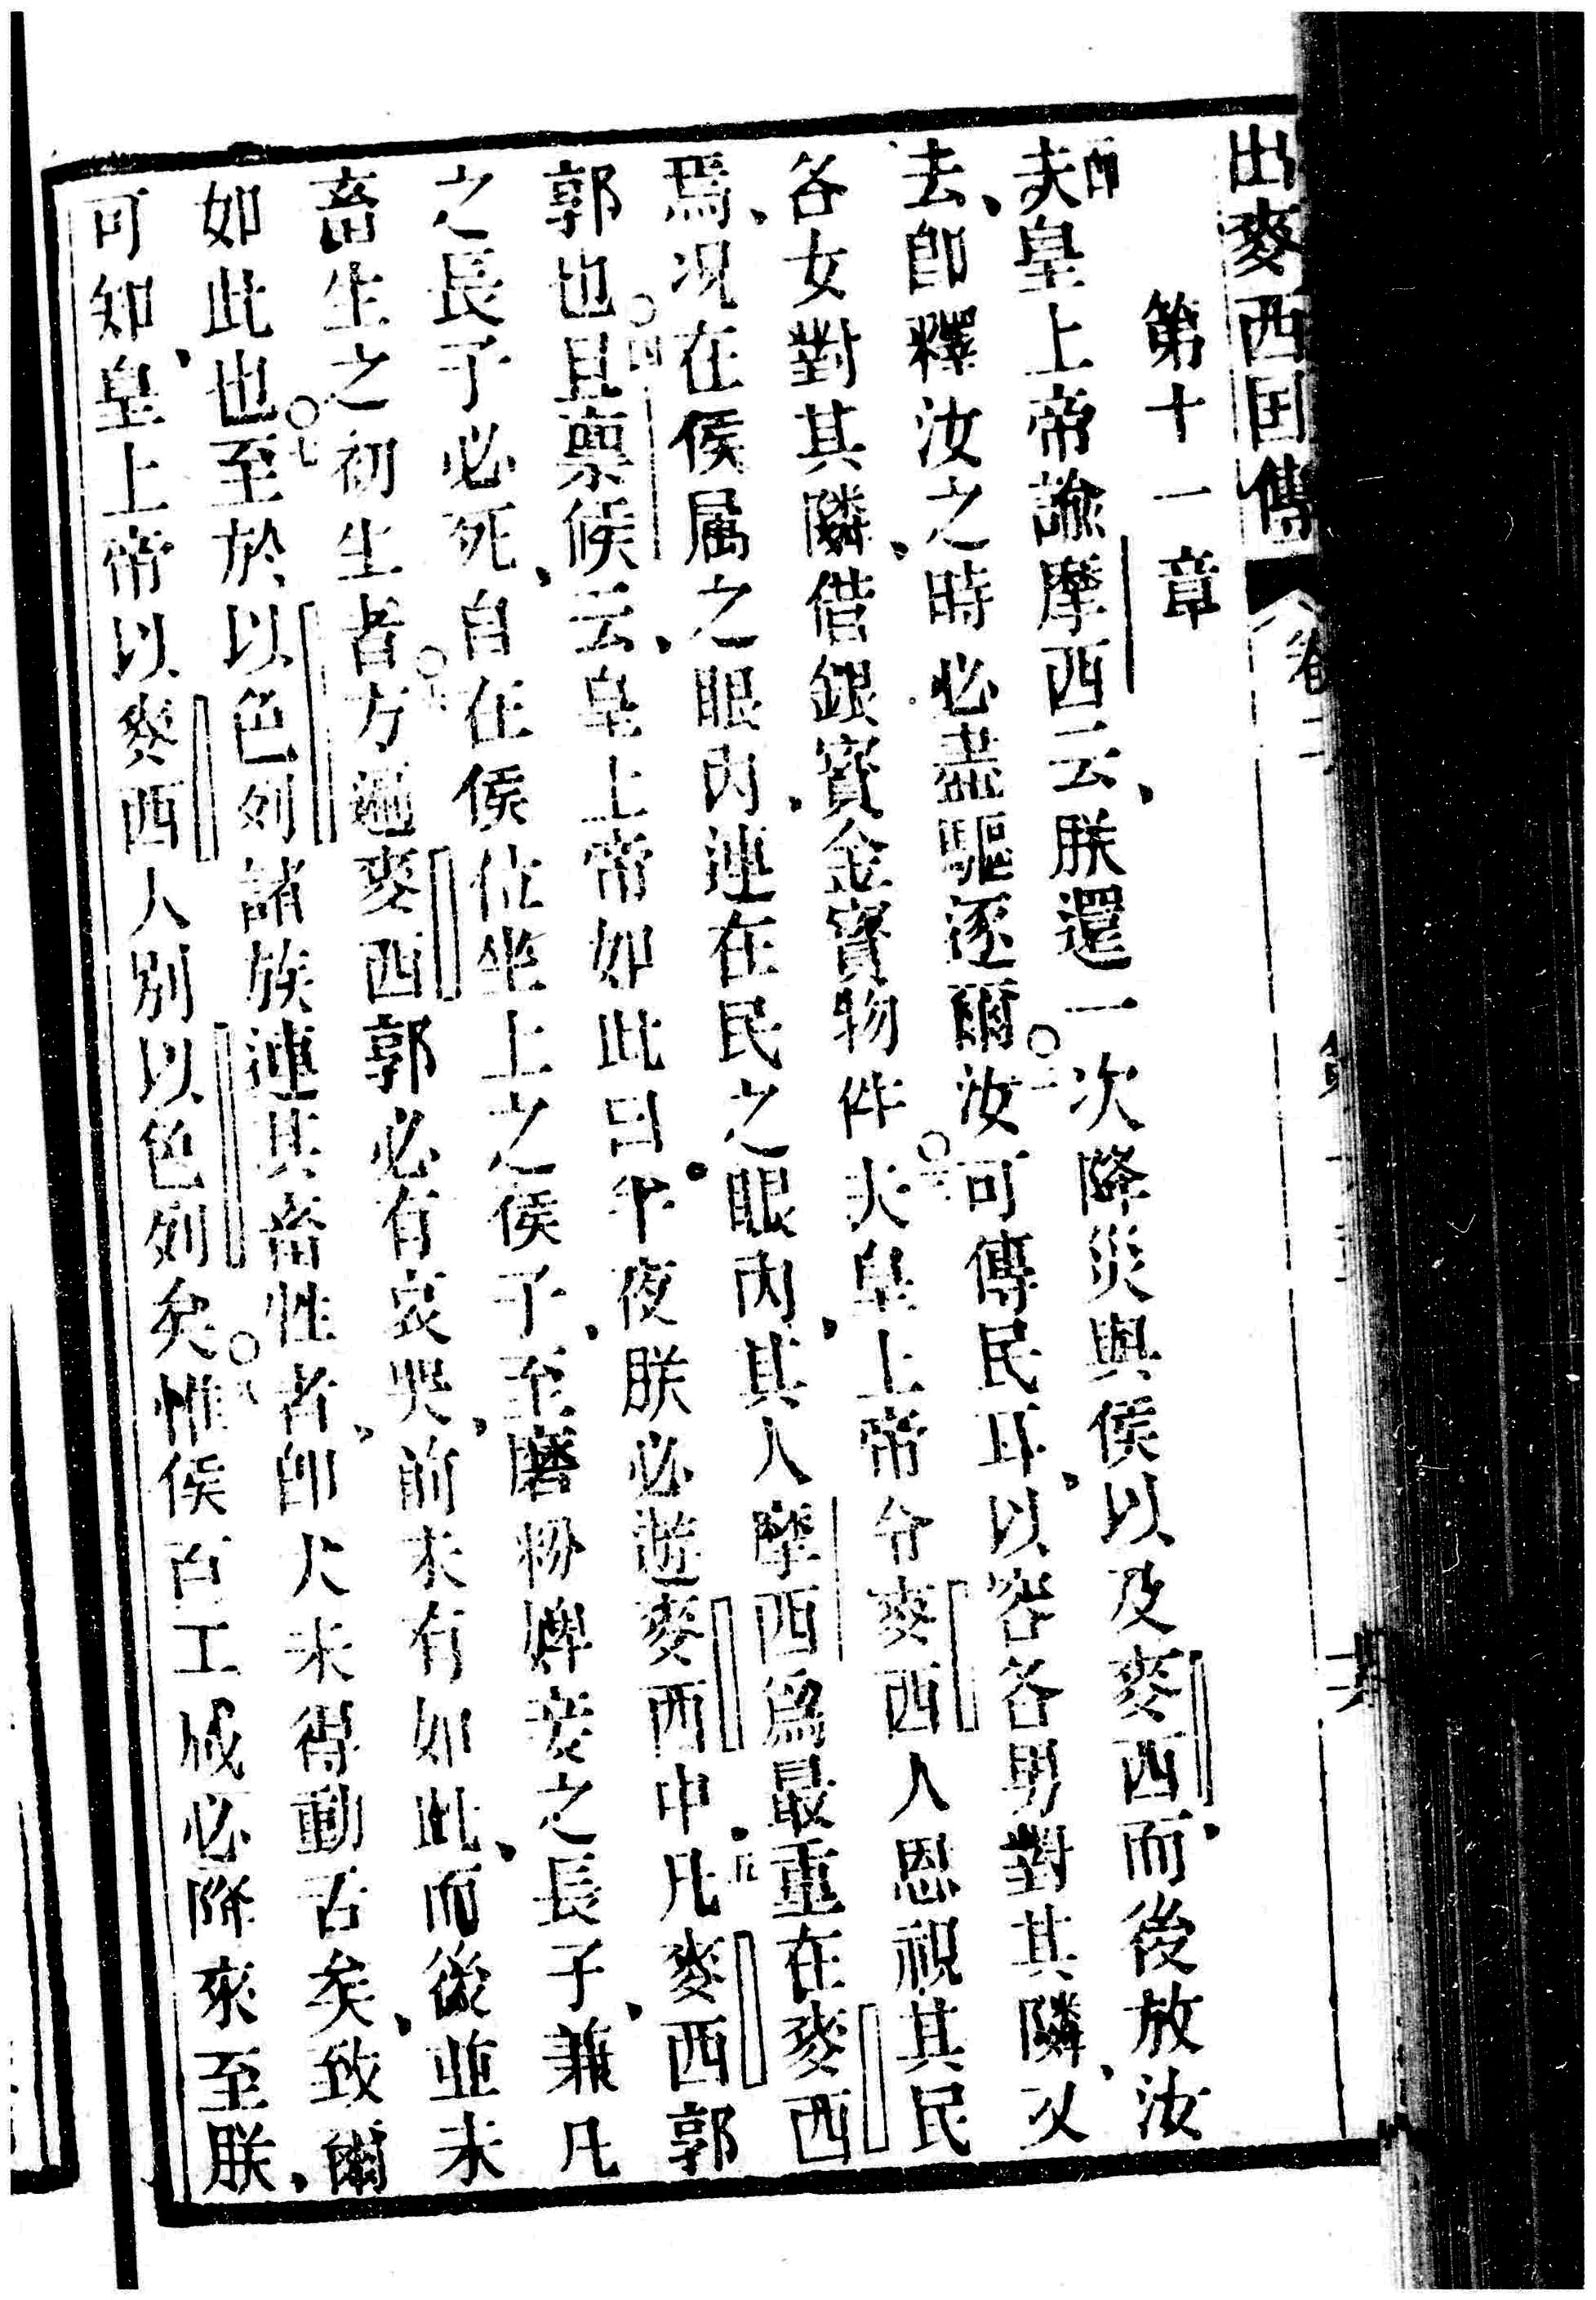 出麥西囯傳 卷二
第十一章
夫皇上帝諭摩西云、朕還一次降災與侯以及麥西、而後放汝
去、即釋汝之時必盡驅逐爾○二汝可傳民耳、以容各男對其隣、又
各女對其隣、借銀寶金寶物件○三夫皇上帝令麥西人恩視其民
焉、況在侯属之眼內、連在民之眼內、其人摩西為最重在麥西
郭也○四且禀侯云、皇上帝如此曰半夜朕必遊麥西中、○五凡麥西郭
之長子必死、自在侯位坐上之侯子、至磨粉婢妾之長子、兼凡
畜生之初生者○六方遍麥西郭必有哀哭、前未有如此、而後並未
如此也○七至於以色列諸族連其畜牲者、即犬未得動舌矣、致爾
可知、皇上帝以麥西人別以色列矣○八惟侯百工咸必降來至朕、